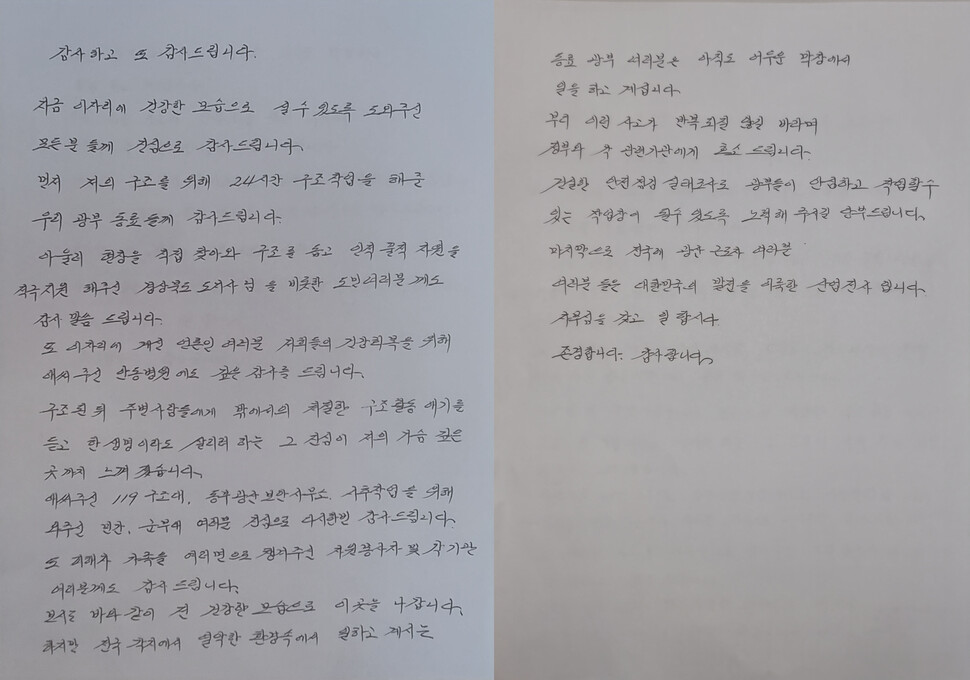 감사하고 또 감사드립니다.
지금 이자리에 건강한 모습으로 설수 있도록 도와주신
모든분 들께 진심으로 감사드립니다.
먼저 저의 구조를 위해 24시간 구조작업을 해준
우리 광부 동료들께 감사드립니다.
아울러 현장을 직접 찾아와 구조를 돕고 인적 물적 자원을
적극지원 해주신 경상북도 도지사 님 을 비롯한 도민여러분 께도
감사 말씀 드립니다.
또 이자리에 계신 언론인 여러분 저희들의 건강회복을 위해
애써 주신 안동병원 에도 깊은 감사를 드립니다.
구조된 뒤 주변사람들에게 밖에서의 처절한 구조활동 얘기를
듣고 한생명이라도 살리려 하는 그 진심이 저의 가슴 깊은
곳 까지 느껴 졌습니다.
애써주신 119 구조대, 동부광산보안사무소, 시추작업을 위해
와주신 민간, 군부대 여러분 진심으로 다시한번 감사드립니다.
또 피해자 가족을 여러면으로 챙겨주신 자원봉사자 및 각기관
여러분께도 감사 드립니다.
보시는 바와 같이 전 건강한 모습으로 이곳을 나갑니다.
하지만 전국 각지에서 열악한 환경속에서 일하고 계시는
동료 광부 여러분은 아직도 어두운 막장에서
일을 하고 계십니다.
부디 이런 사고가 반복 되질 않길 바라며
정부와 각 관련기관에게 호소 드립니다.
진실한 안전점검 실태조사로 광부들이 안심하고 작업할수
있는 작업장이 될수 있도록 노력해 주시길 당부드립니다.
마지막으로 전국에 광산 근로자 여러분
여러분 들은 대한민국의 발전을 이룩한 산업전사 입니다.
사부심을 갖고 일 합시다
존경합니다. 감사합니다.